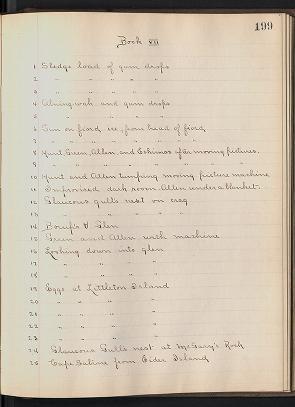 199
Book VII
1 Sledge load of gum drops
2 " " " " "
3 " " " " "
4 Ahningwah and gum drops
5 " " " "
6 Sun on fiord ice, from head of fiord
7 " " " " " " "
8 Hunt, Green, Allen, and Eskimos after moving pictures.
9 " " " " " " "
10 Hunt and Allen pumping moving picture machine
11 Improvised dark room. Allen under a blanket.
12 Glaucous gull's nest on crag
13 " " " "
14 Borup's Glen
15 Green and Allen with machine
16 Looking down into glen
17 " " " "
18 " " " "
19 Eggs at Littleton Island
20 " " " "
21 " " " "
22 " " " "
23 " " " "
24 Glaucous Gull's nest at McGary's Rock
25 Cape Sabine from Eider Island